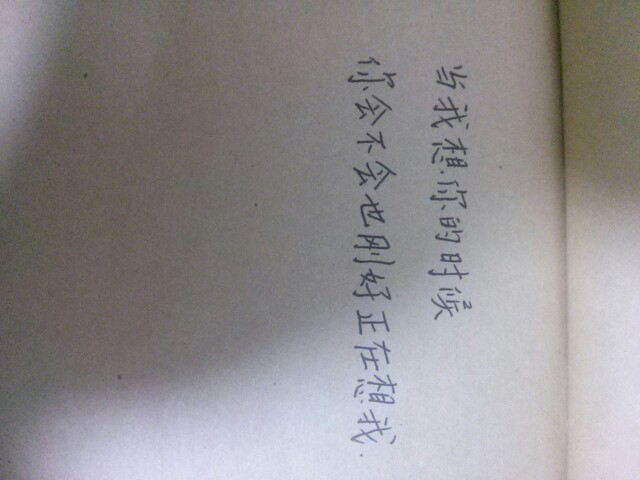 当我想你的时候
你会不会也刚好正在想我.